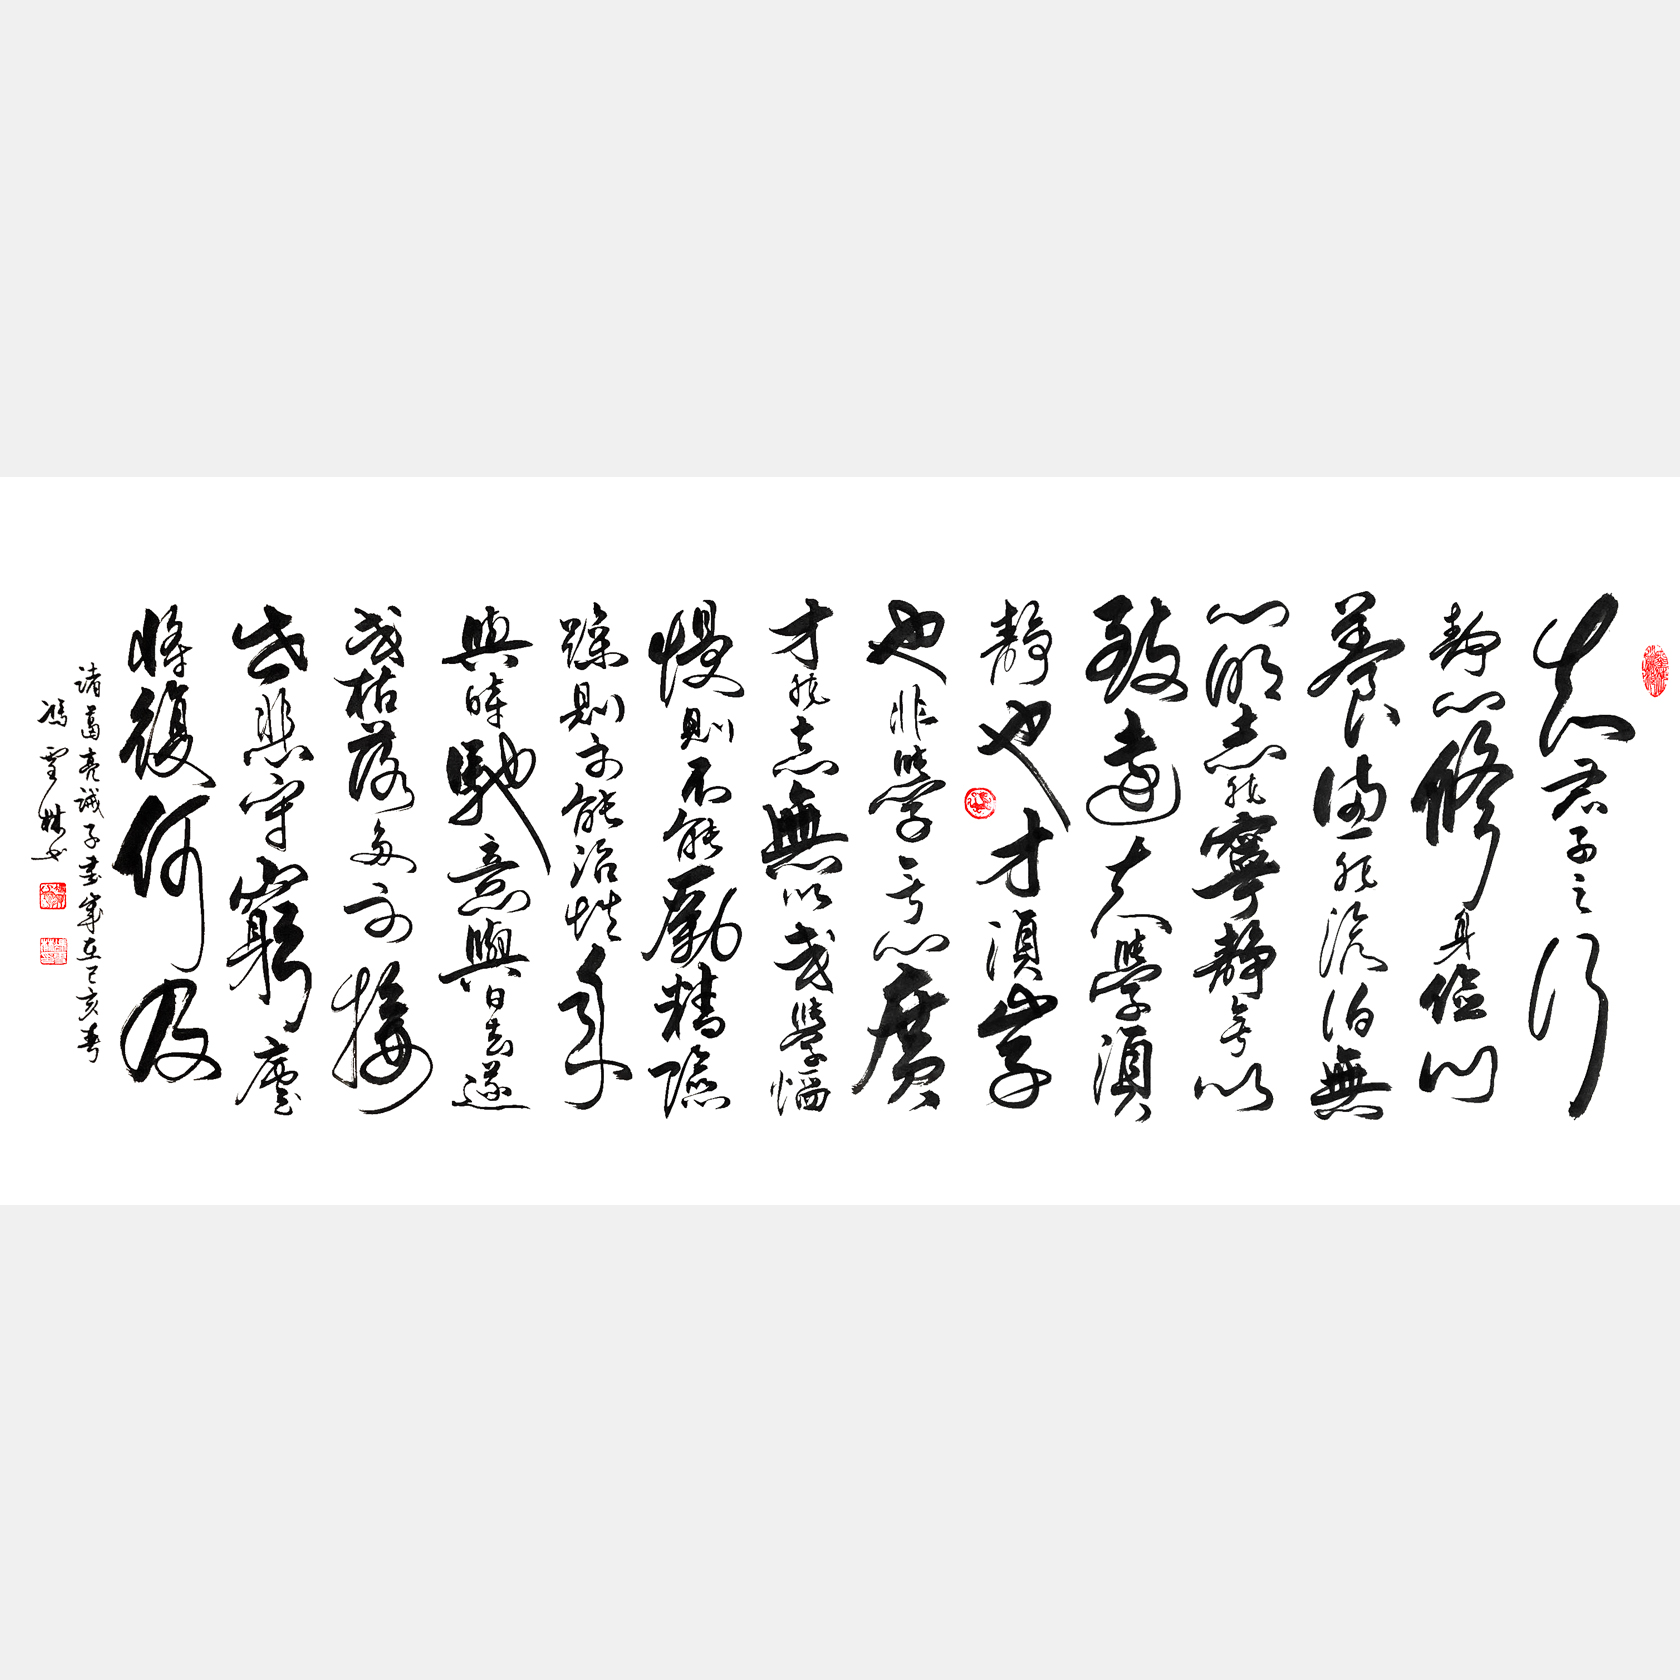 夫君子之行
静以修身俭以
養德非澹泊無
以明志非寧靜無以
致遠夫學須
靜也才須学
也非學无以廣
才非志無以成學慆
慢則不能勵精险
躁則不能治性年
與時馳意與日去遂
成枯落多不接
世悲守窮廬
将復何及
诸葛亮诫子書歲在己亥春